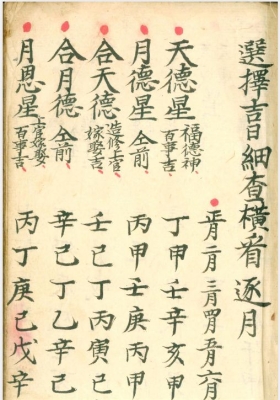 選擇吉日細查橫看逐月
正月二月三月四月五月六月
天德星 福德神百事吉 丁申壬辛亥甲
月德星 仝前 丙甲壬庚丙甲
合天德 造修上官嫁娶吉 壬巳丁丙寅己
合月德 仝前 辛己丁乙辛己
月恩星 上官嫁娶百事吉 丙丁庚己戊辛